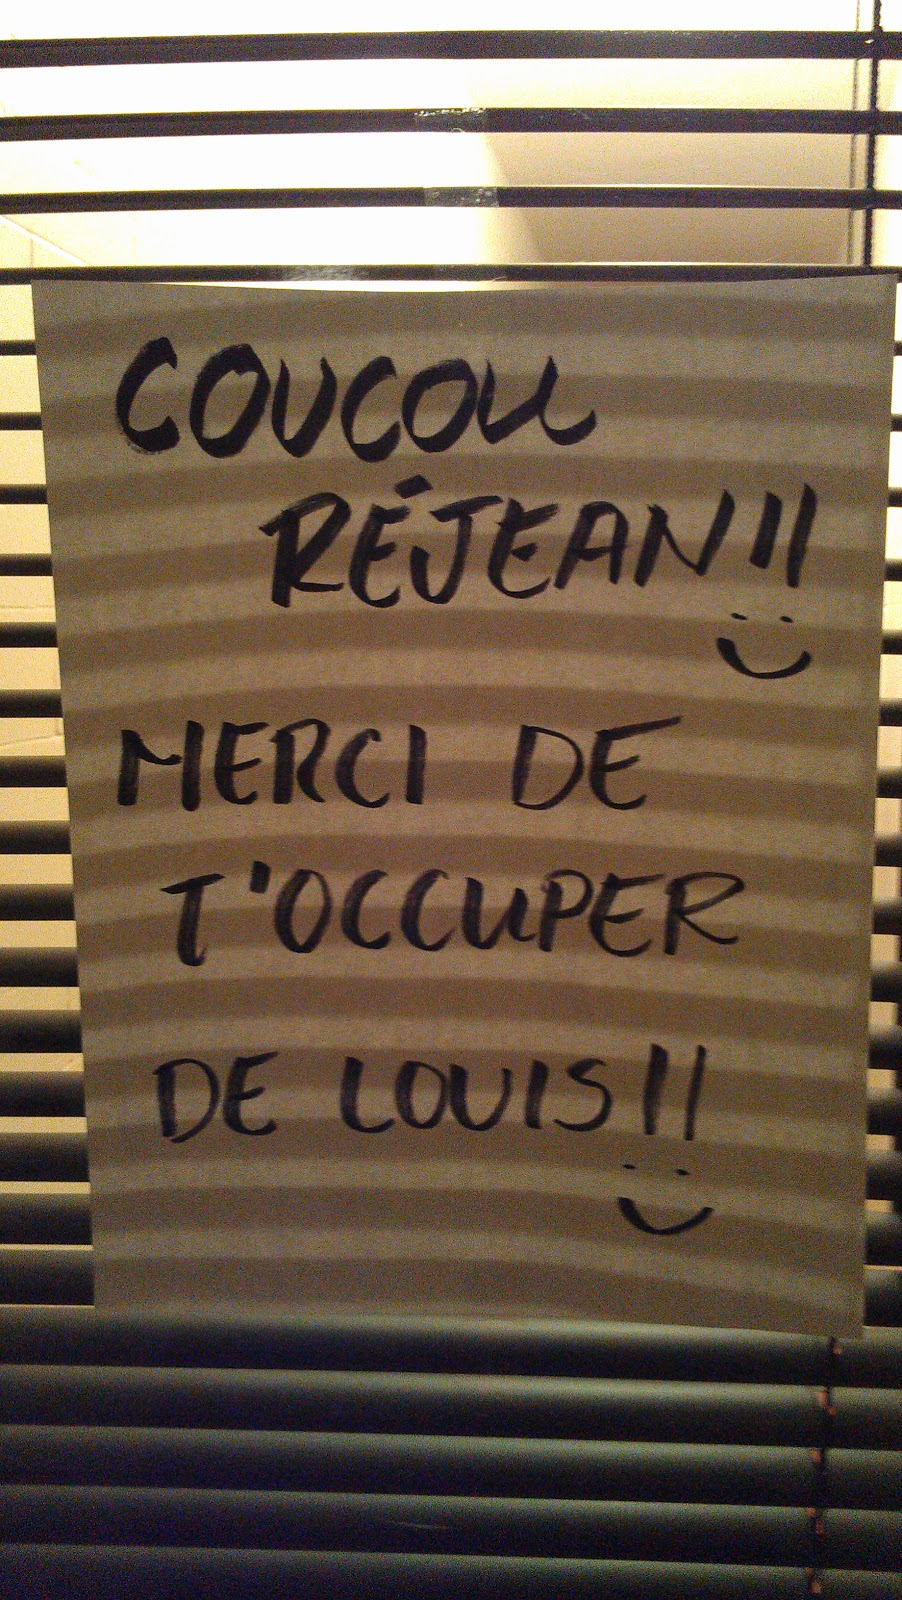 COUCOU
RÉJEAN!!
MERCI DE
T'OCCUPER
DE LOUIS!!